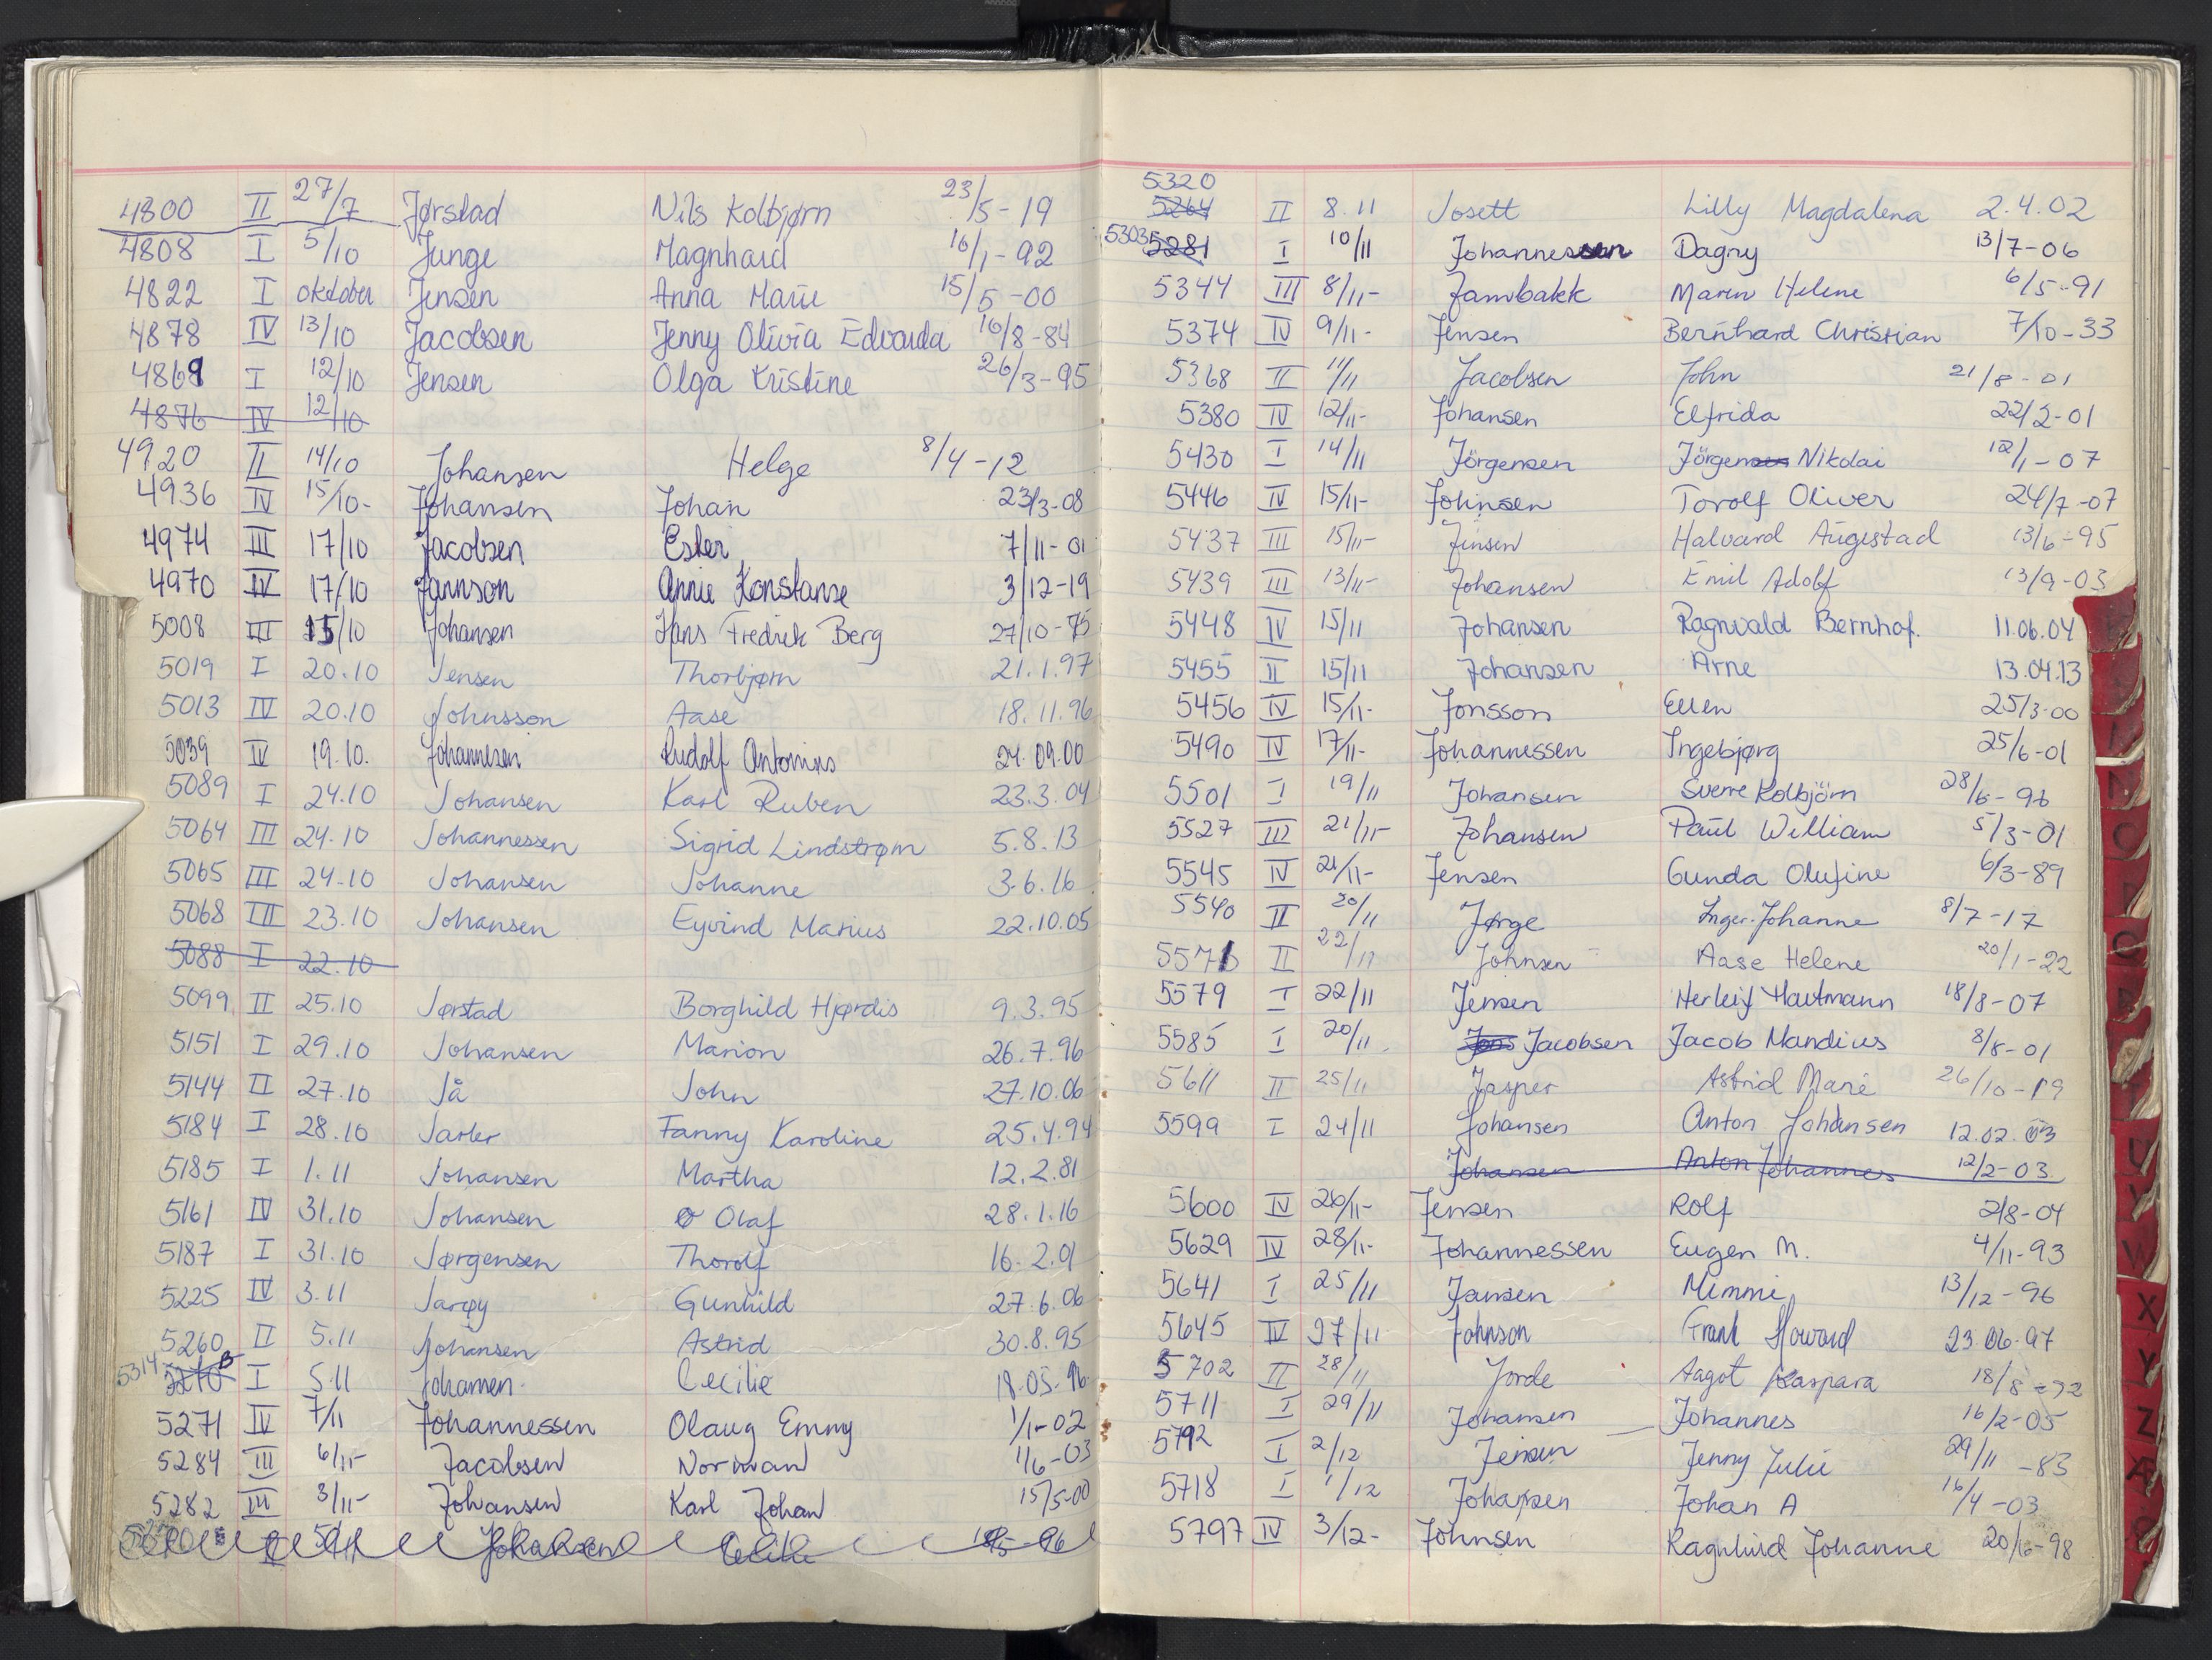 4800 II 27/7 Jørstad Nils Kolbjørn 23/5-19
4808 I 5/10 Junge Magnhard 16/1-92
4822 I oktober Jensen Anna Marie 15/5-00
4878 IV 13/10 Jacobsen Jenny Olivia Edvarda 16/8-84
4869 I 12/10 Jensen Olga Kristine 26/3-95
4876 IV 12/10
4920 II 14/10 Johansen Helge 8/4-12
4936 IV 15/10- Johansen Johan 23/3-08
4974 III 17/10 Jacobsen Ester 7/11-01
4970 IV 17/10 Jannson Annie Konstanse 3/12-19
5008 III 15/10 Johansen Hans Fredrik Berg 27/10-75
5019 I 20.10 Jensen Thorbjørn 21.1.97
5013 IV 20.10 Johnsson Aase 18.11.96
5039 IV 19.10. Johannesen Rudolf Antonius 24.09.00
5089 I 24.10 Johansen Karl Ruben 23.3.04
5064 III 24.10 Johannessen Sigrid Lindstrøm 5.8.13
5065 III 24-10 Johansen Johanne 3.6.16
5068 III 23.10 Johansen Eyvind Marius 22.10.05
5088 I 22.10
5099 II 25.10 Jørstad Borghild Hjørdis 9.3.95
5151 I 29.10 Johansen Marion 26.7.96
5144 II 27.10 Jå John 27.10.06
5184 I 28.10 Jarler Fanny Karoline 25.4.94
5185 I 1.11 Johansen Martha 12.2.81
5161 IV 31.10 Johansen Olaf 28.1.16
5187 I 31.10 Jørgensen Thorolf 16.2.01
5225 IV 3.11 Jarøy Gunhild 27.6.06
5260 II 5.11 Johansen Astrid 30.8.95
5314 I 5.11 Johansen Cecilie 18.05.96
5271 IV 7/11 Johannessen Olaug Emmy 1/1-02
5284 III 6/11- Jacobsen Norman 1/6-03
5282 III 3/11- Johansen Karl Johan 15/5-00
Johansen Cecilie
5320
5264 II 8.11 Josett Lilly Magdalena 2.4.02
5303 5281 I 10/11 Johannessen Dagny 13/7-06
5344 III 8/11- Jambakk Maren Helene 6/5-91
5374 IV 9/11- Jensen Bernhard Christian 7/10-33
5368 II 11/11 Jacobsen John 21/8-01
5380 IV 12/11- Johansen Elfrida 22/2-01
5430 I 14/11 Jörgensen Jörgensen Nikolai 12/1-07
5446 IV 15/11- Johnsen Torolf Oliver 24/7-07
5437 III 15/11- Jensen Halvard Augestad 13/6-95
5439 III 13/11- Johansen Emil Adolf 13/9-03
5448 IV 15/11 Johansen Ragnvald Bernhof. 11.06.04
5455 II 15/11 Johansen Arne 13.04.13
5456 IV 15/11- Jonsson Ellen 25/3-00
5490 IV 17/11- Johannessen Ingebjørg 25/6-01
5501 I 19/11 Johansen Sverre Kolbjörn 28/6-96
5527 III 21/11- Johansen Paul William 5/3-01
5545 IV 21/11- Jensen Gunda Olufine 6/3-89
5540 II 20/11 Jørge Inger-Johanne 8/7-17
5571 II 22/11 Johnsen Aase Helene 20/1-22
5579 I 22/11 Jensen Herleif Hartmann 18/8-07
5585 I 20/11 Jacobsen Jacob Mandius 8/8-01
5611 II 25/11 Jasper Astrid Marie 26/10-19
5599 I 24/11 Johansen Anton Johansen 12.02.03
Johansen Anton Johannes 12/2-03
5600 IV 26/11- Jensen Rolf 2/8-04
5629 IV 28/11- Johannessen Eugen M. 4/11-93
5641 I 25/11 Jansen Mimmi 13/12-96
5645 IV 27/11 Johnson Grant Howard 23.06.97
5702 II 28/11 Jorde Aagot Kaspara 18/8-22
5711 I 29/11 Johansen Johannes 16/2-05
5792 I 2/12 Jensen Jenny Julie 29/11-83
5718 I 1/12 Johansen Johan A 16/4-03
5797 IV 3/12- Johnsen Ragnhild Johanne 20/6-98
X
Y
Z
Æ